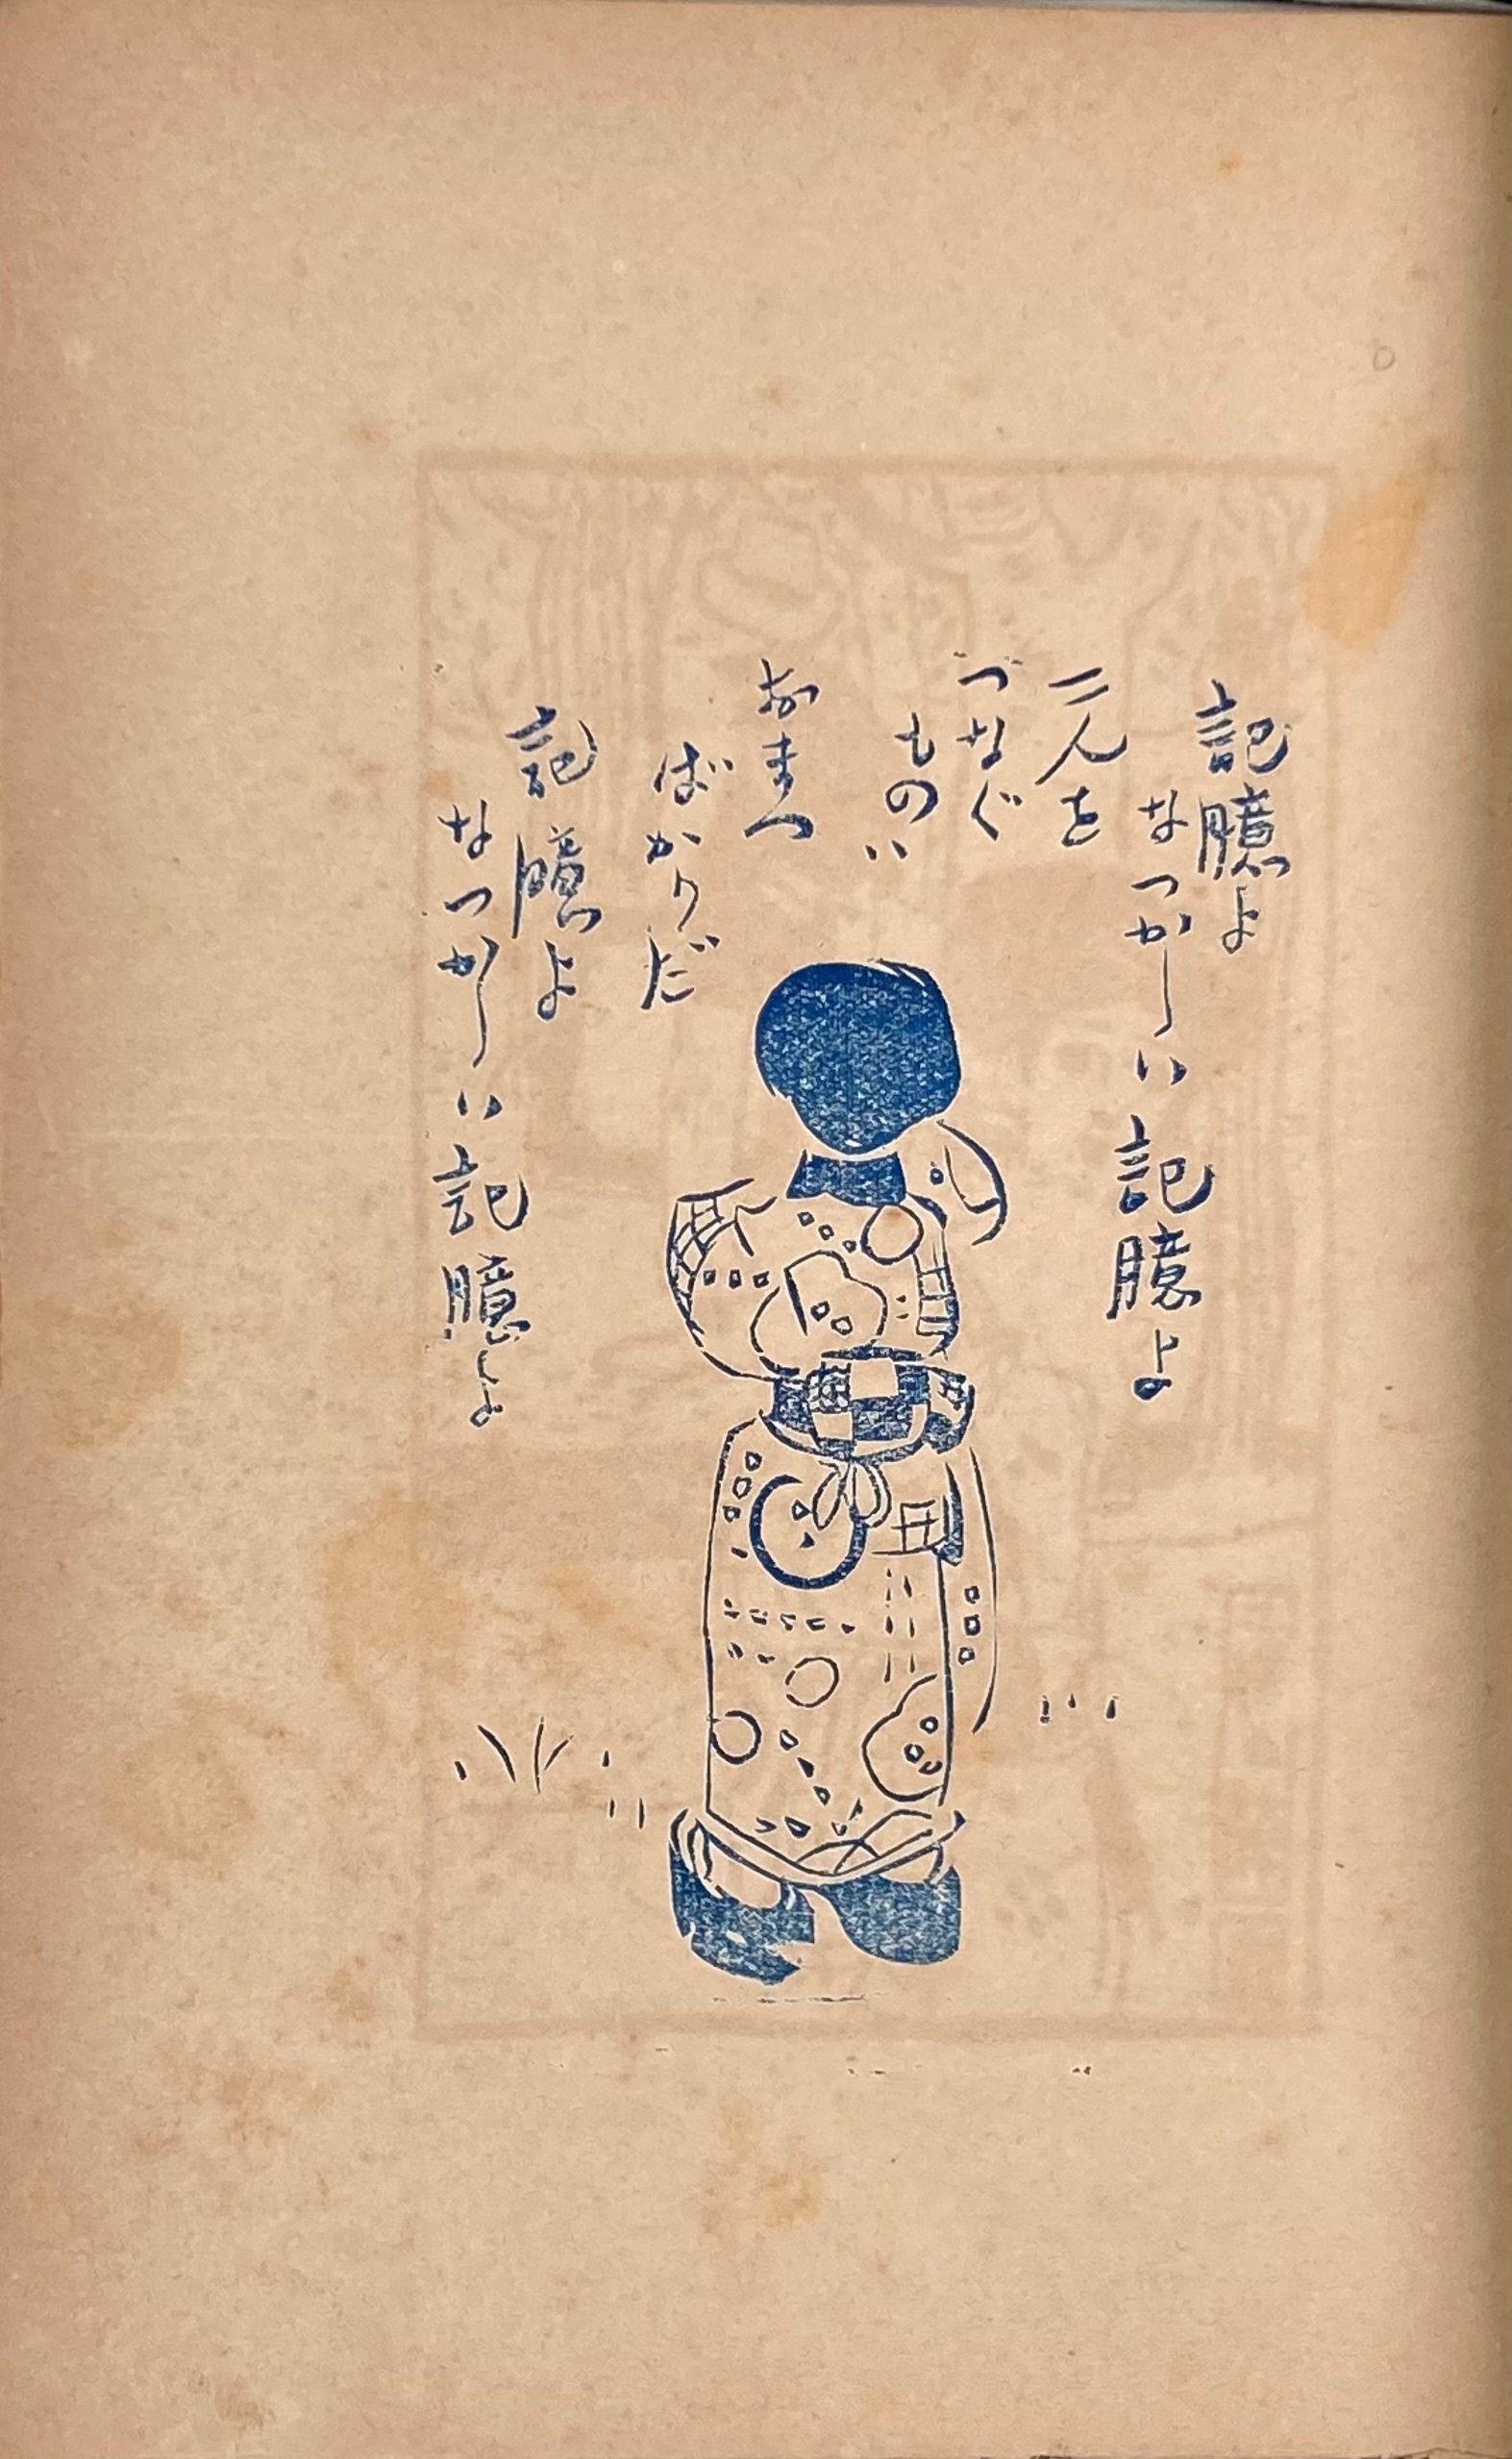 記臆よ
なつかしい記臆よ
二人を
つなぐ
ものハ
おまへ
ばかりだ
記臆よ
なつかしい記臆よ